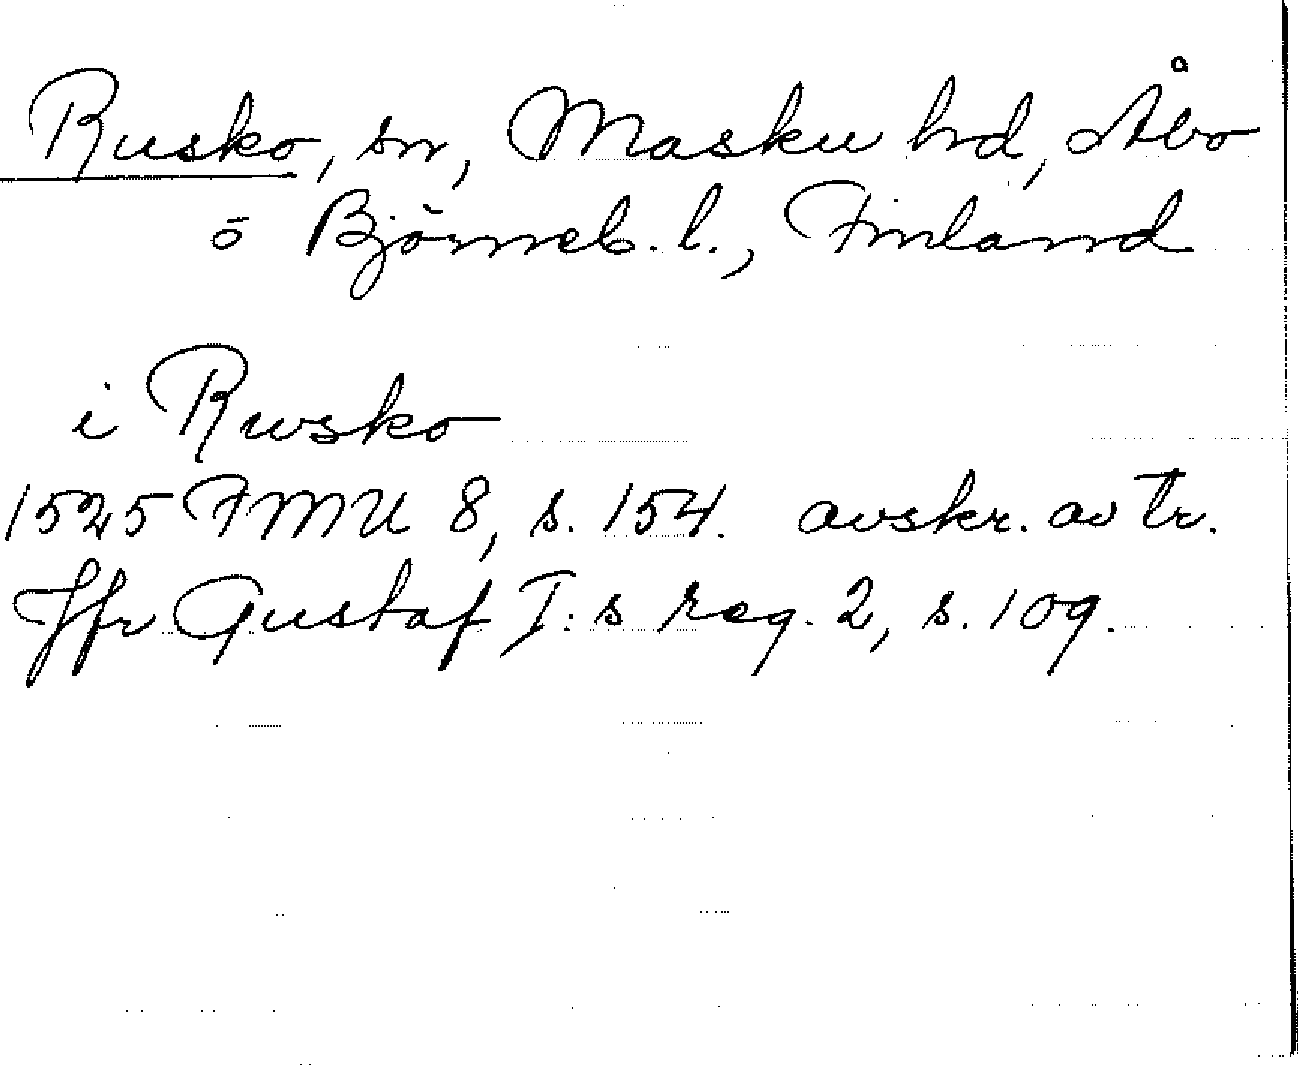 Rusko, sn, Masku hd, Åbo
o Björneb. l., Finland
i Rwsko
1525 FMU 8, s. 154. avskr. av tr.
Jfr Gustaf I:s reg. 2, s. 109.